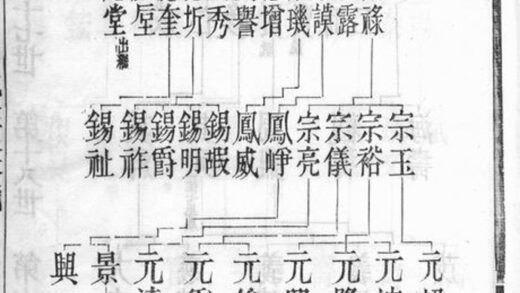 祿
露
謨
璣
增
譽
秀
圻
奎
堂出繼
宗玉
宗裕
宗儀
宗亮
鳳崢
鳳威
錫嘏
錫明
錫爵
錫祚
錫祉
元
元
元
元
元
元
元
景
與